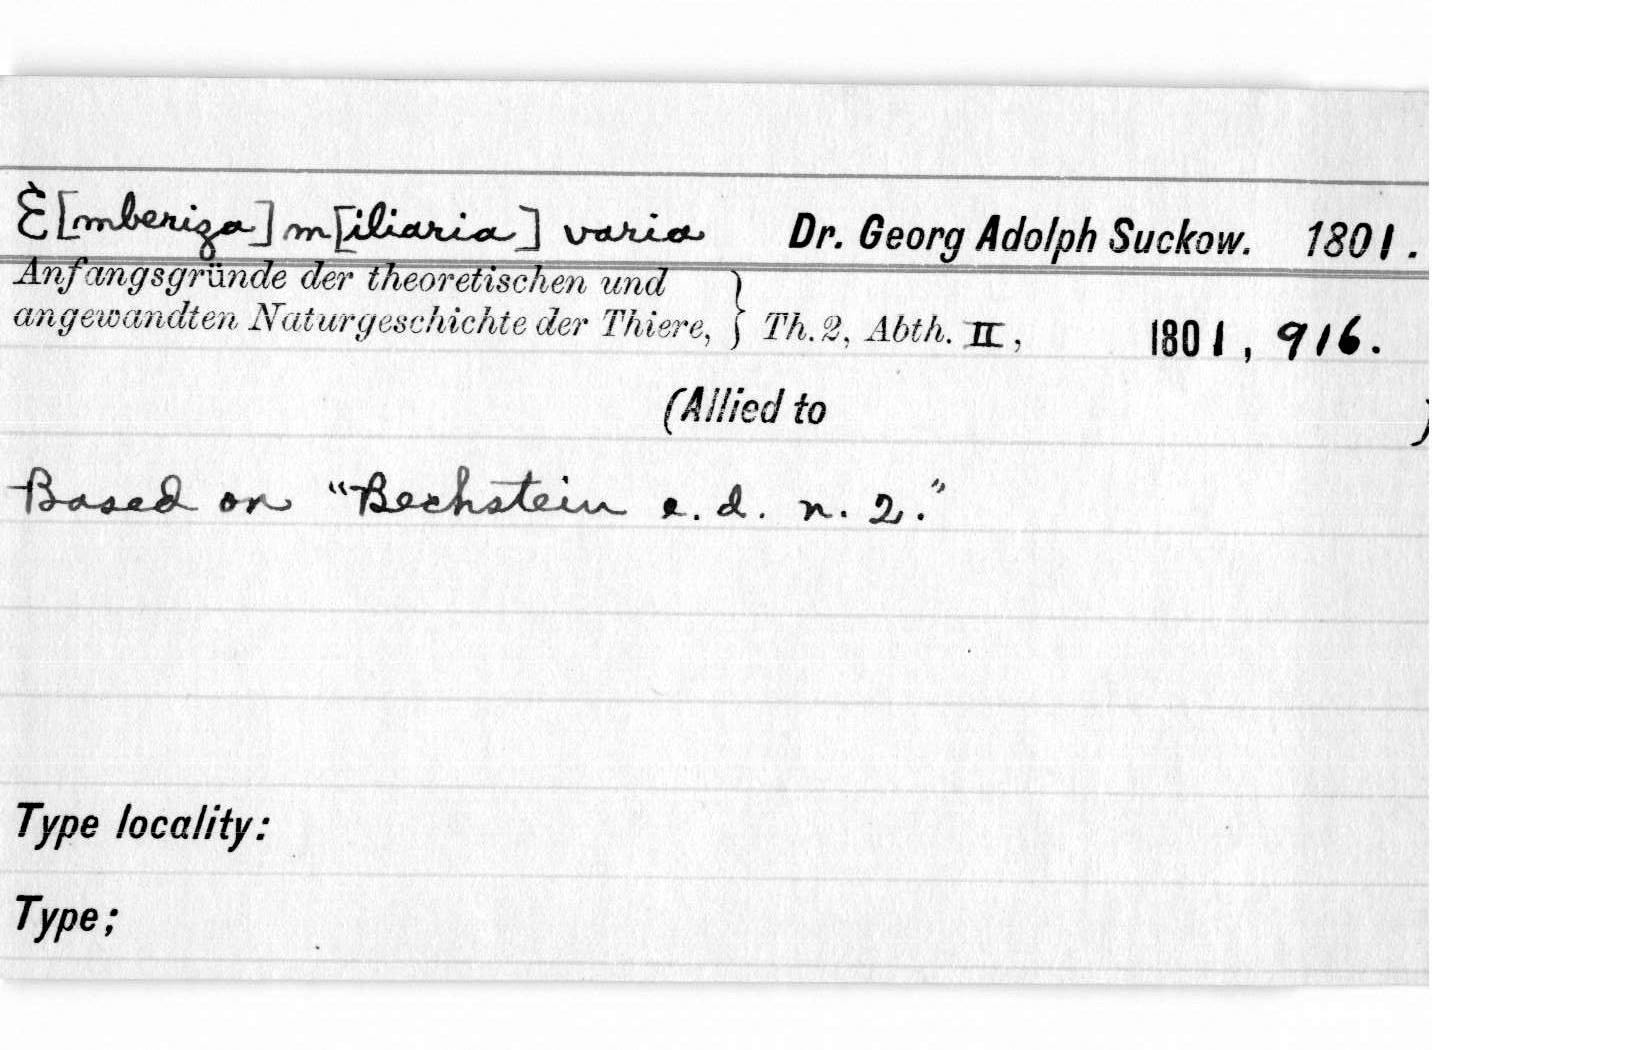 E[mberiza] m[iliaria] varia Dr. Georg Adolph Suckow. 1801.
Anfangsgründe der theoretischen und
angewandten Naturgeschichte der Thiere, } Th. 2, Abth. II, 1801, 916.
(Allied to )
Based on "Bechstein e. d. n. 2."
Type locality:
Type;